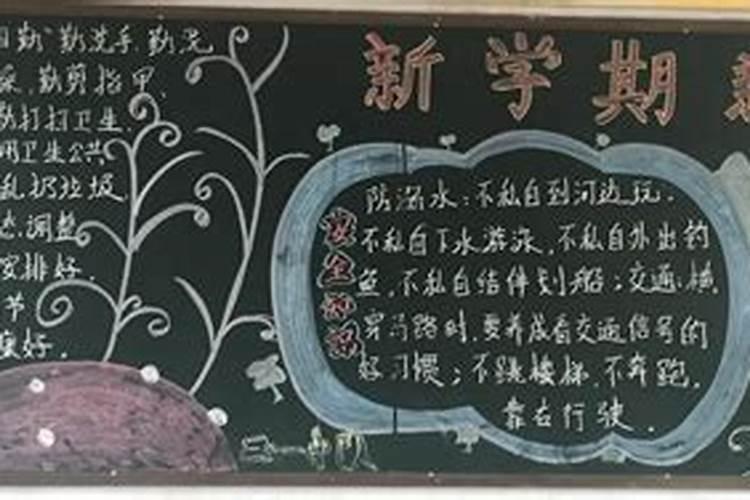 勤洗手,勤洗
勤剪指甲,
打扫卫生,
卫生公共
乱扔垃圾
调整
安排好,
节
好.
新学期
防溺水:不私自到河边玩.
不私自下水游泳,不私自外出钓
鱼,不私自结伴划船;交通:横
穿马路时,要养成看交通信号的
好习惯;不跳楼梯,不奔跑.
靠右行驶.
安全知识